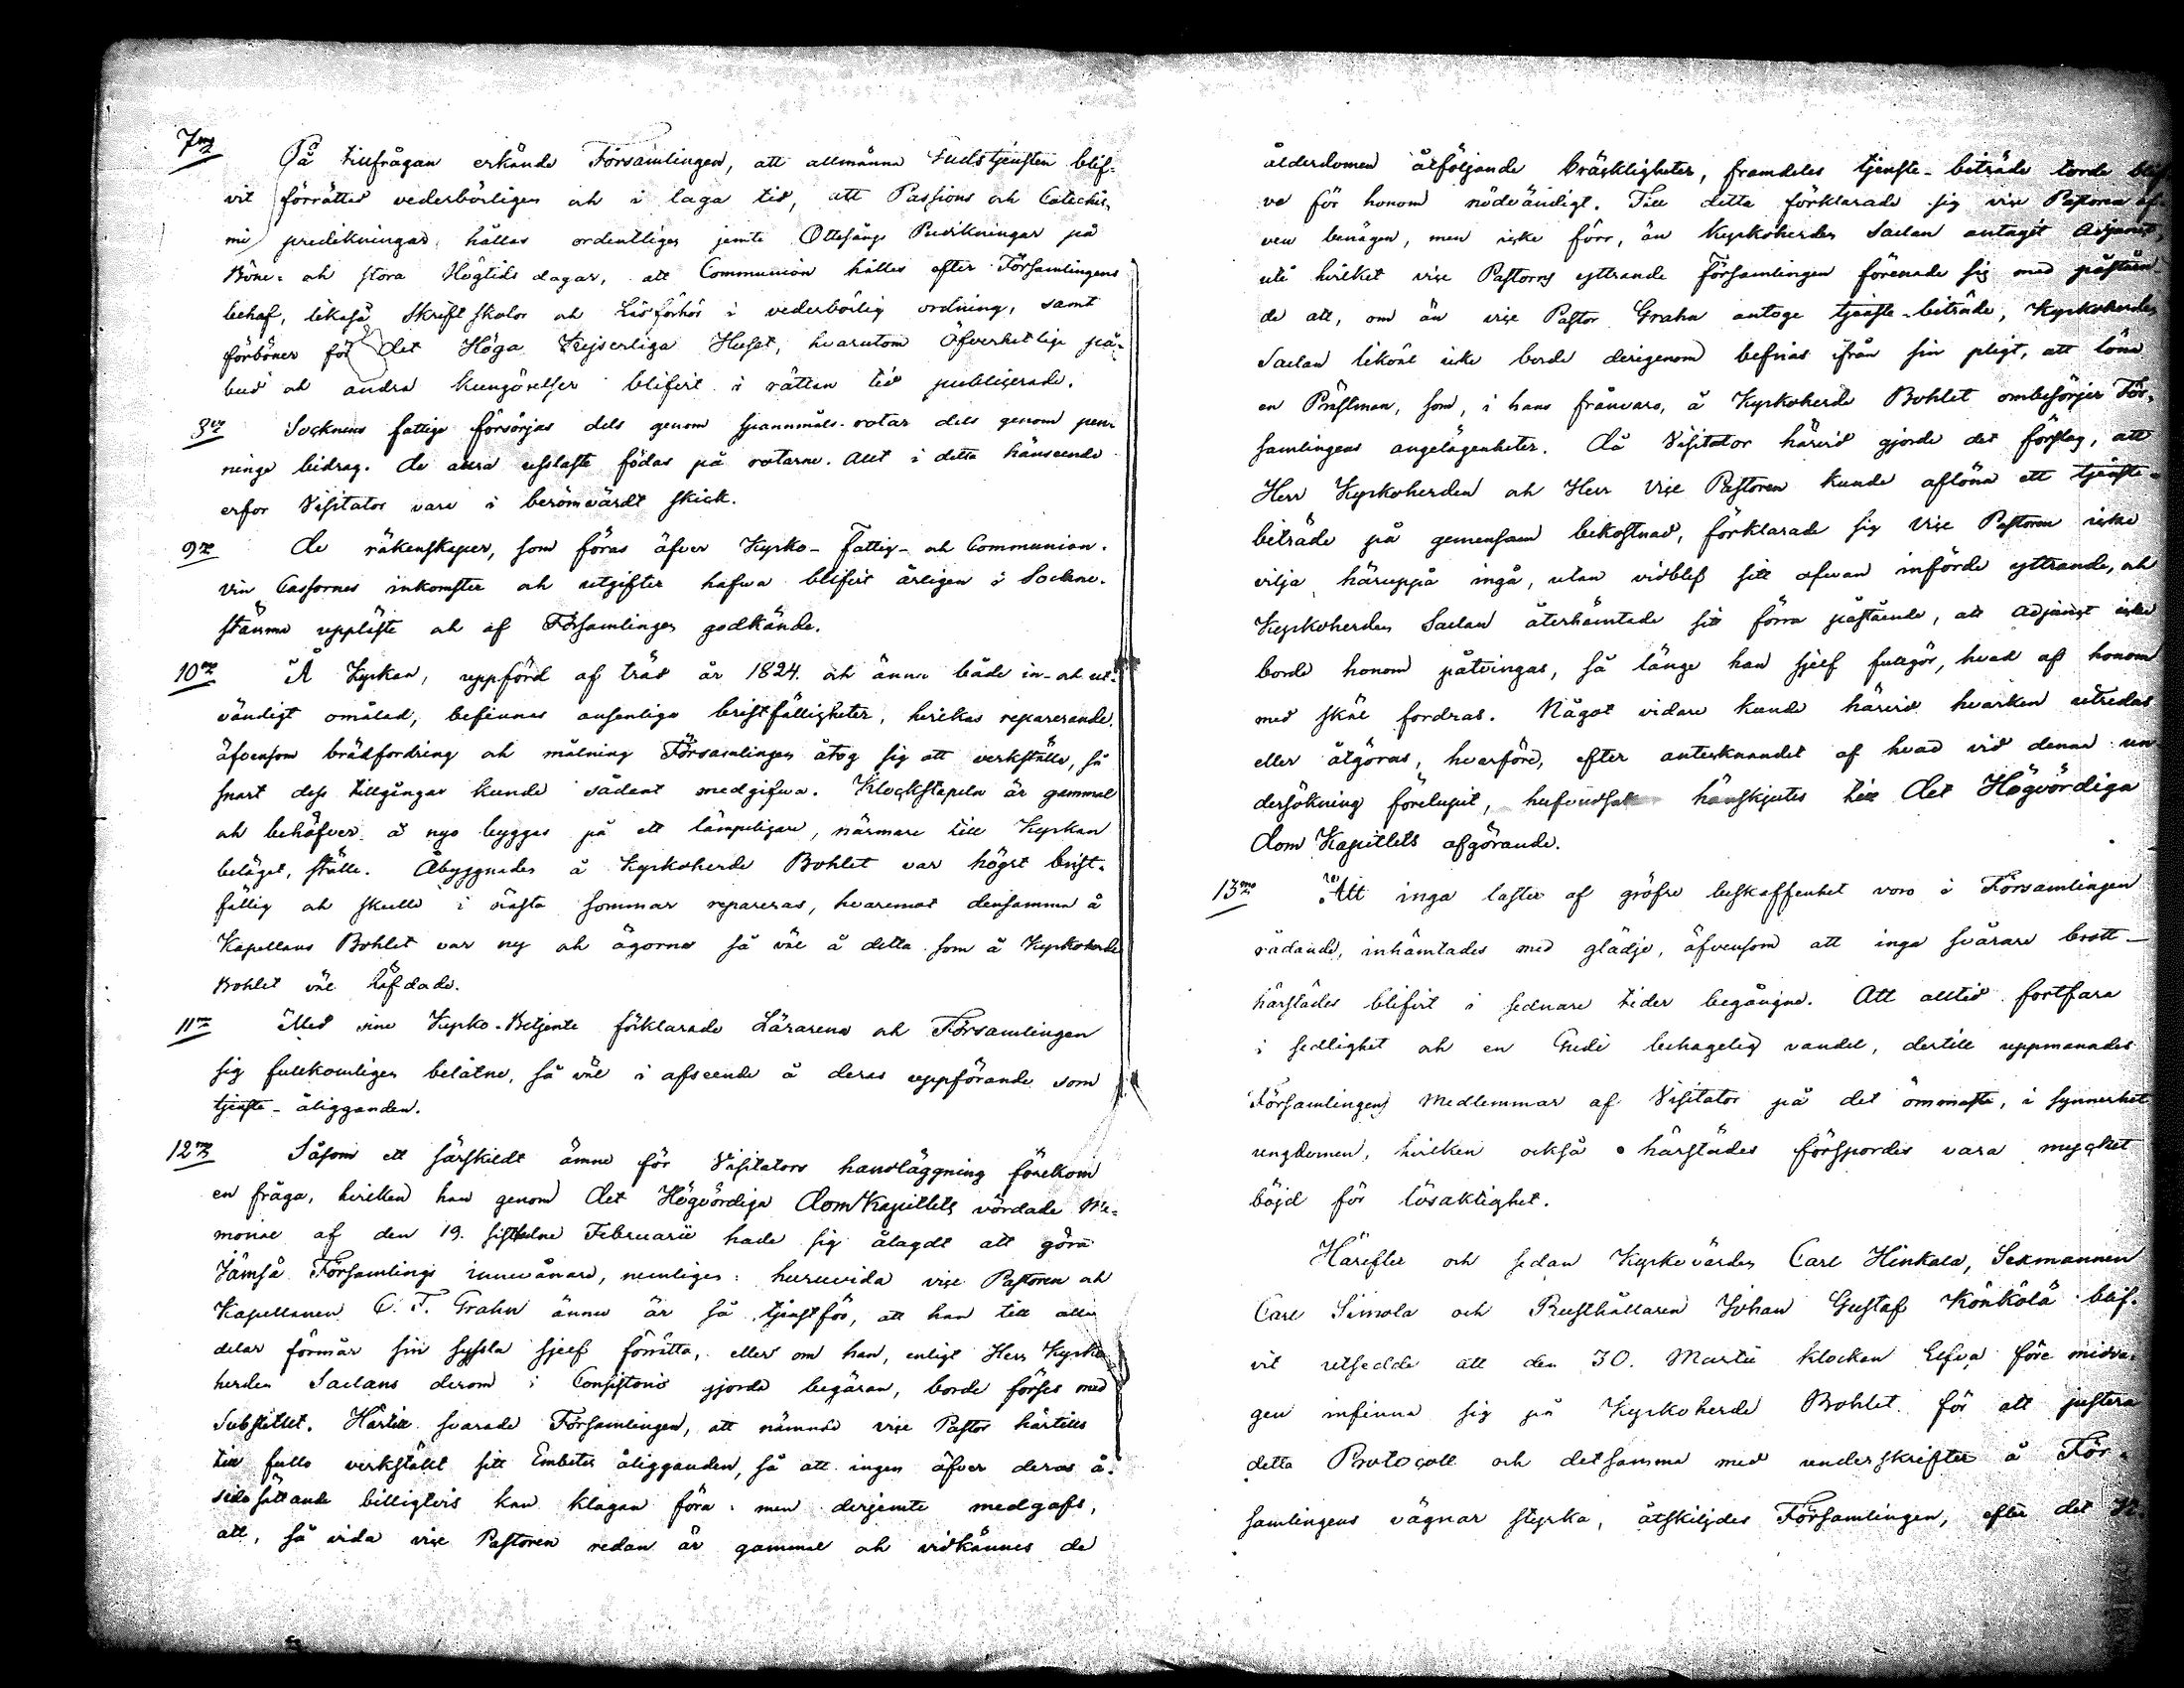 7mo På tillfrågan erkände Församlingen, att allmänna Gudstjensten blif-
vit förrättad vederbörligen och i laga tid, att Passions och Catechis-
mi predikningar hållas ordentligen jemte Ottesångs Predikningar på
Böne- och stora Högtids dagar, att Communion hålles efter Församlingens
behof, likaså Skriftskolor och Läsförhör i vederbörlig ordning, samt
förböner för det Höga Kejserliga Huset, hvarutom Öfverhetlige på-
bud och andra kungörelser blifvit i rättan tid publicerade.
8vo Socknens fattige försörjas dels genom spannmåls-rotar dels genom pen-
ninge bidrag. De allra uslaste födas på rotarne. Allt i detta hänseende
erfor Visitator vara i berömvärdt skick.
9no De räkenskaper, som föras öfver Kyrko- Fattig- och Communion-
vin Cassornes inkomster och utgifter hafva blifvit årligen i Sockne-
stämma uppläste och af Församlingen godkände.
10mo Å Kyrkan, uppförd af träd år 1824. och ännu både in- och ut-
vändigt omålad, befinnas ansenliga bristfälligheter, hvilkas reparerande,
äfvensom brädfordring och målning Församlingen åtog sig att verkställa, så
snart dess tillgångar kunde sådant medgifva. Klockstapeln är gammal
och behöfver å nyo byggas på ett lämpligare, närmare till Kyrkan
beläget, ställe. Åbyggnaden å Kyrkoherde Bohlet var högst brist-
fällig och skulle i nästa sommar repareras, hvaremot densamma å
Kapellans Bohlet var ny och ägorne så väl å detta som å Kyrkoherde
Bohlet väl häfdade.
11mo Med sine Kyrko-Betjente förklarade Lärarena och Församlingen
sig fullkomligen belåtne, så väl i afseende å deras uppförande som
tjenste-åligganden.
12mo Såsom ett särskildt ämne för Visitators handläggning förekom
en fråga, hvilken han genom Det Högvördiga DomKapitlets vördade Me-
morial af den 19. sistledne Februarii hade sig ålagdt att göra
Jämsä Församlings innevånare, nemligen: huruvida vice Pastoren och
Kapellanen C. F. Grahn ännu är så tjenstför, att han till alla
delar förmår sin syssla sjelf förrätta, eller om han, enligt Herr Kyrko-
herden Saelans derom i Consistorio gjorde begäran, borde förses med
Substitut. Härtill svarade Församlingen, att nämnde vice Pastor härtills
till fullo verkställt sitt Embetes åligganden, så att ingen öfver deras å-
sidosättande billigtvis kan klagan föra: men derjemte medgafs,
att, så vida vice Pastoren redan är gammal och vidkännes de
ålderdomen åtföljande bräckligheter, framdeles tjenste-biträde torde blif-
va för honom nödvändigt. Till detta förklarade sig vice Pastoren äf-
ven benägen, men icke förr, än Kyrkoherden Saelan antagit Adjunct,
uti hvilket vice Pastorns yttrande Församlingen förenade sig med påståen-
de att, om än vice Pastor Grahn antoge tjenste-biträde, Kyrkoherden
Saelan likväl icke borde derigenom befrias ifrån sin pligt, att löna
en Prästman, som, i hans frånvaro, å Kyrkoherde Bohlet ombesörjer För-
samlingens angelägenheter. Då Visitator härvid gjorde det förslag, att
Herr Kyrkoherden och Herr Vice Pastoren kunde aflöna ett tjenste-
biträde på gemensam bekostnad, förklarade sig Vice Pastoren icke
vilja häruppå ingå, utan vidblef sitt ofvan införde yttrande, och
Kyrkoherden Saelan återhämtade sitt förra påstående, att Adjunct icke
borde honom påtvingas, så länge han sjelf fullgör, hvad af honom
med skäl fordras. Något vidare kunde härvid hvarken utredas
eller åtgöras, hvarföre, efter antecknandet af hvad vid denna un-
dersökning förelupit, hufvudsaken hänskjutes till Det Högvördiga
Dom Kapitlets afgörande.
13mo Att inga laster af gröfre beskaffenhet voro i Församlingen
rådande, inhämtades med glädje, äfvensom att inga svårare brott
härstädes blifvit i sednare tider begångne. Att alltid fortfara
i sedlighet och en Gudi behagelig vandel, dertill uppmanades
Församlingens Medlemmar af Visitator på det ömmaste, i synnerhet
ungdomen, hvilken också härstädes förspordes vara mycket
böjd för lösaktighet.
Härefter och sedan Kyrkovärden Carl Hinkala, Sexmannen
Carl Simola och Rusthållaren Johan Gustaf Könkölä blif-
vit utsedde att den 30. Martii klockan Elfva före midda-
gen infinna sig på Kyrkoherde Bohlet för att justera
detta Protocoll och detsamma med underskrifter å För-
samlingens vägnar styrka, åtskiljdes Församlingen, efter det